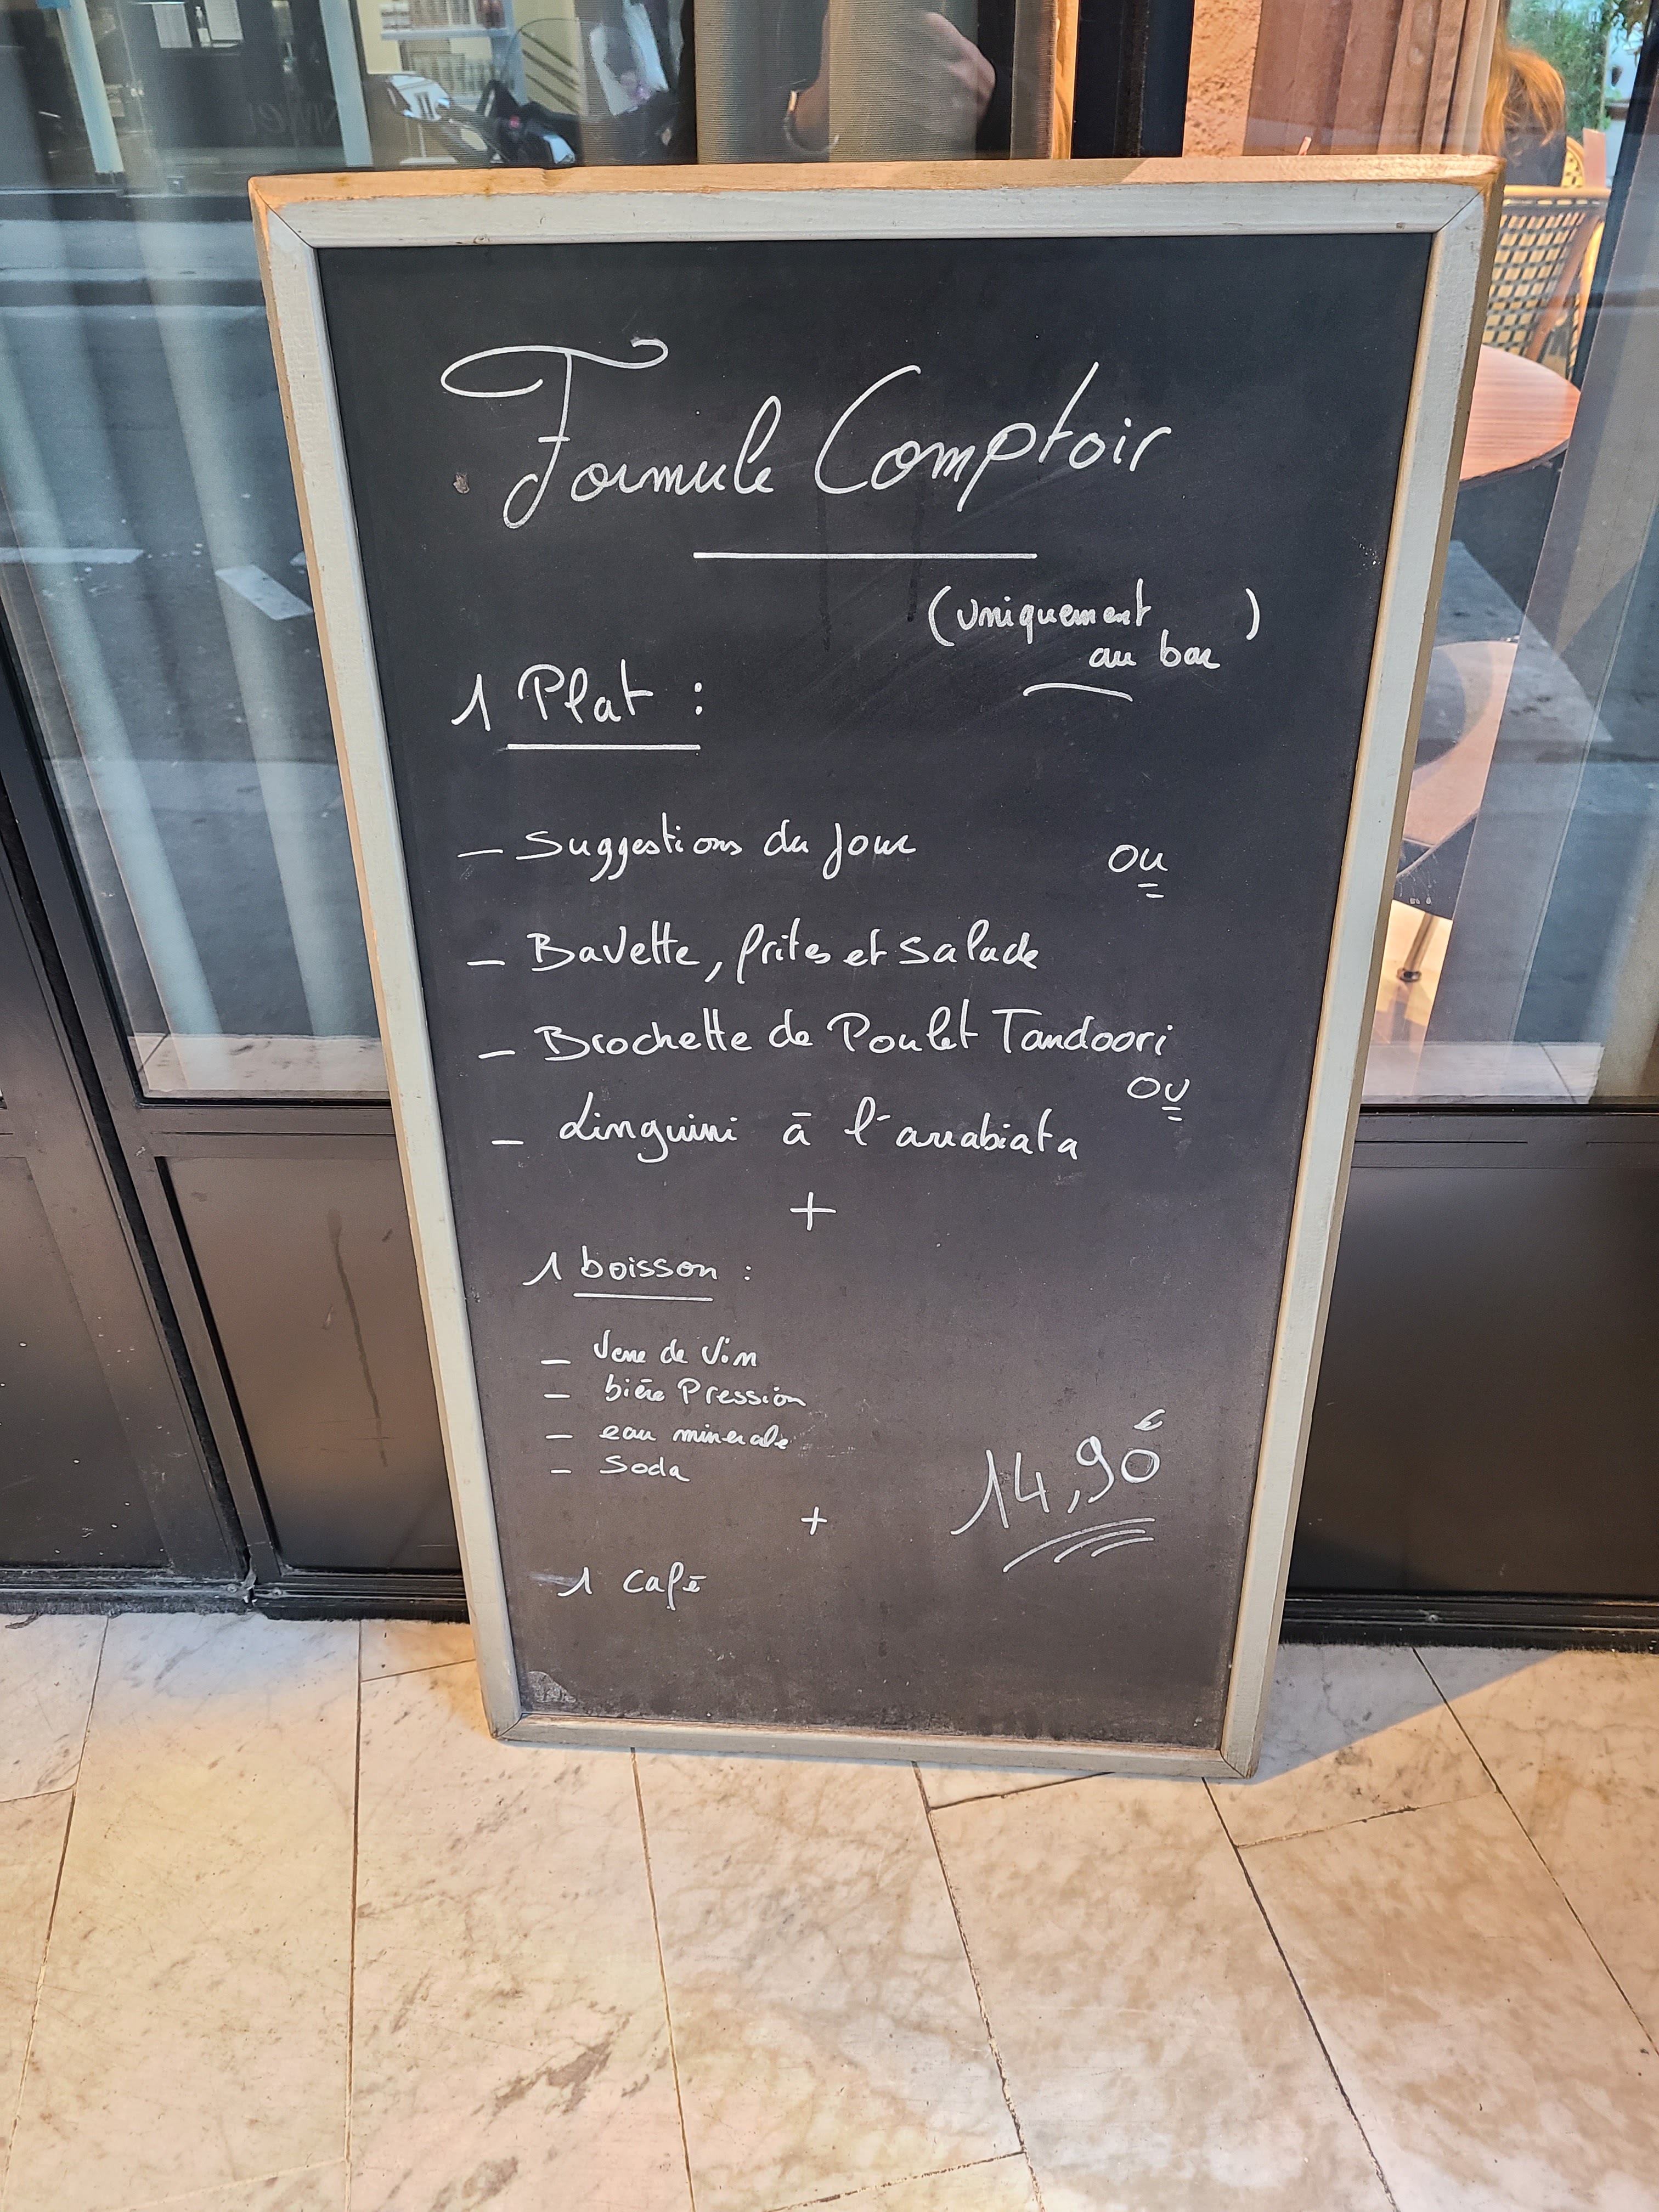 Formule Comptoir
(uniquement
au bar)
1 Plat :
- Suggestions du jour ou
- Bavette, frites et salade
- Brochette de Poulet Tandoori
ou
- Linguini à l'arrabiata
+
1 boisson :
- Verre de Vin
- bière Pression
- eau minerale
- Soda
14,90€
+
1 café